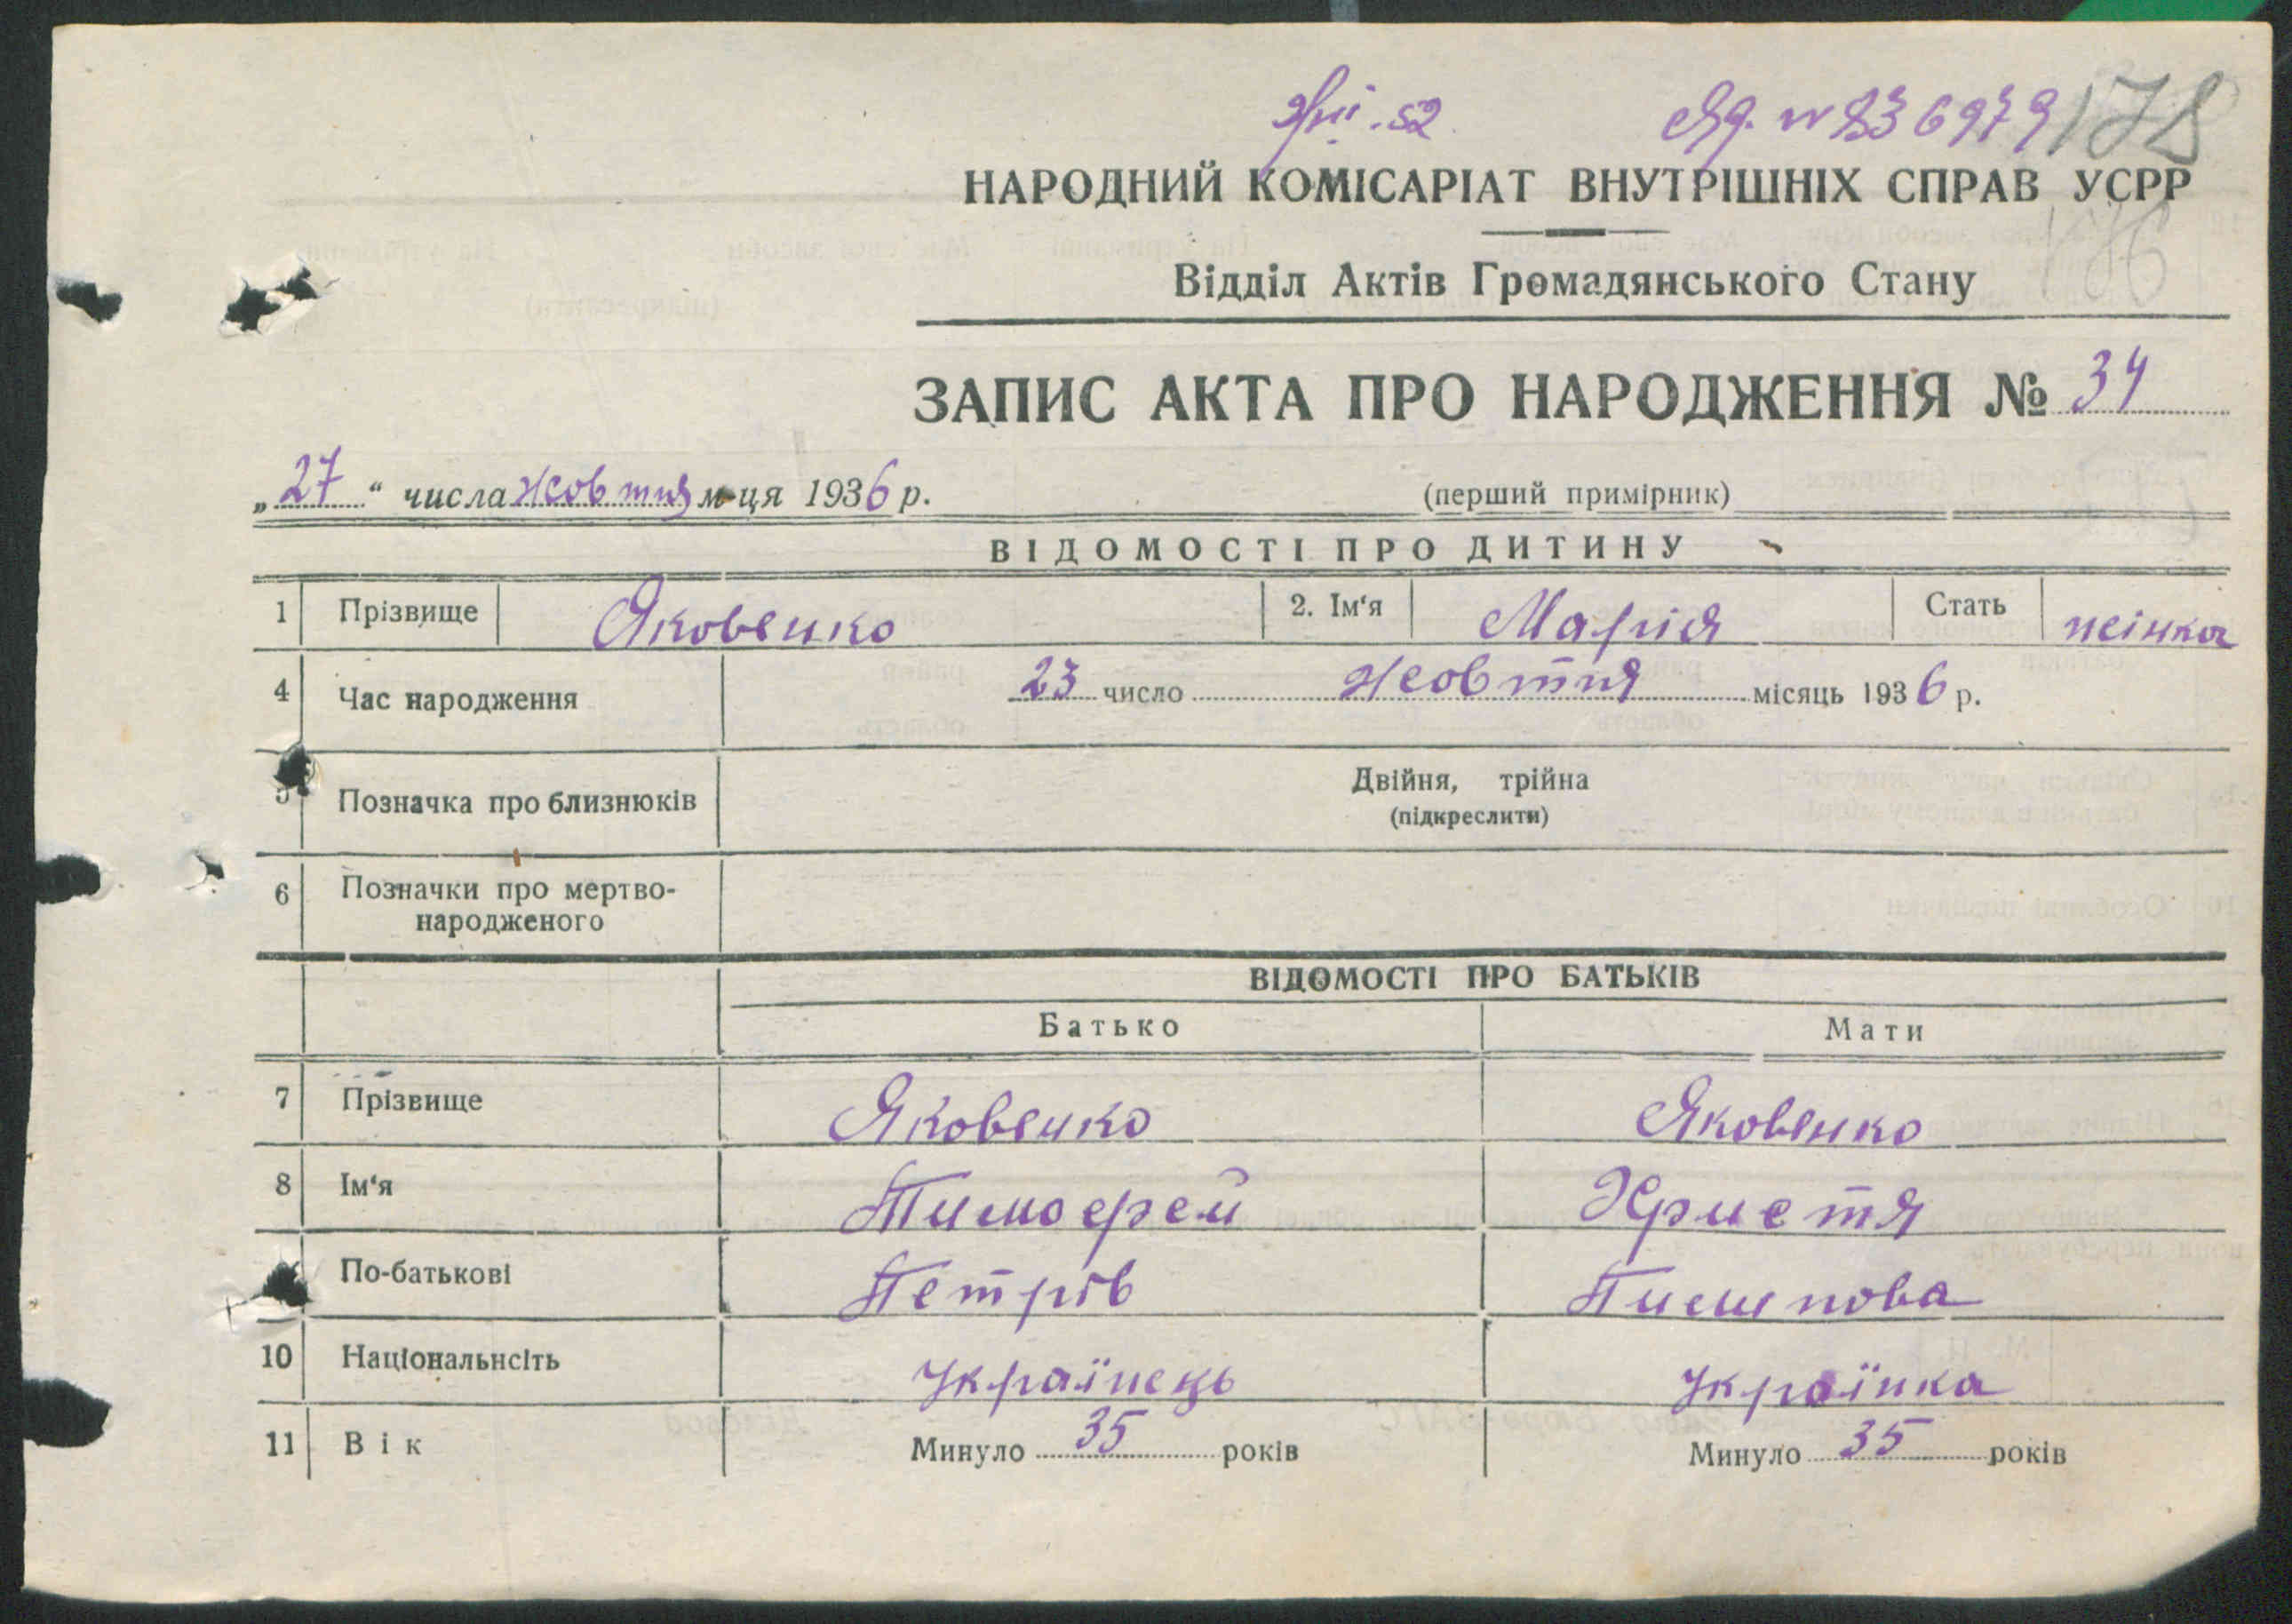 178
НАРОДНИЙ КОМІСАРІАТ ВНУТРІШНІХ СПРАВ УСРР
Відділ Актів Громадянського Стану
ЗАПИС АКТА ПРО НАРОДЖЕННЯ № 34
„27“ числа жовтня м-ця 1936 р.
(перший примірник)
ВІДОМОСТІ ПРО ДИТИНУ
1 Прізвище Яковенко 2. Ім‘я Марія Стать жінка
4 Час народження 23 число жовтня місяць 1936 р.
5 Позначка про близнюків Двійня, трійна
(підкреслити)
6 Позначки про мертво-
народженого
ВІДОМОСТІ ПРО БАТЬКІВ
Батько Мати
7 Прізвище Яковенко Яковенко
8 Ім‘я Тимофей Христя
По-батькові Петрів
10 Національнсіть Українець Українка
11 Вік Минуло 35 років Минуло 35 років